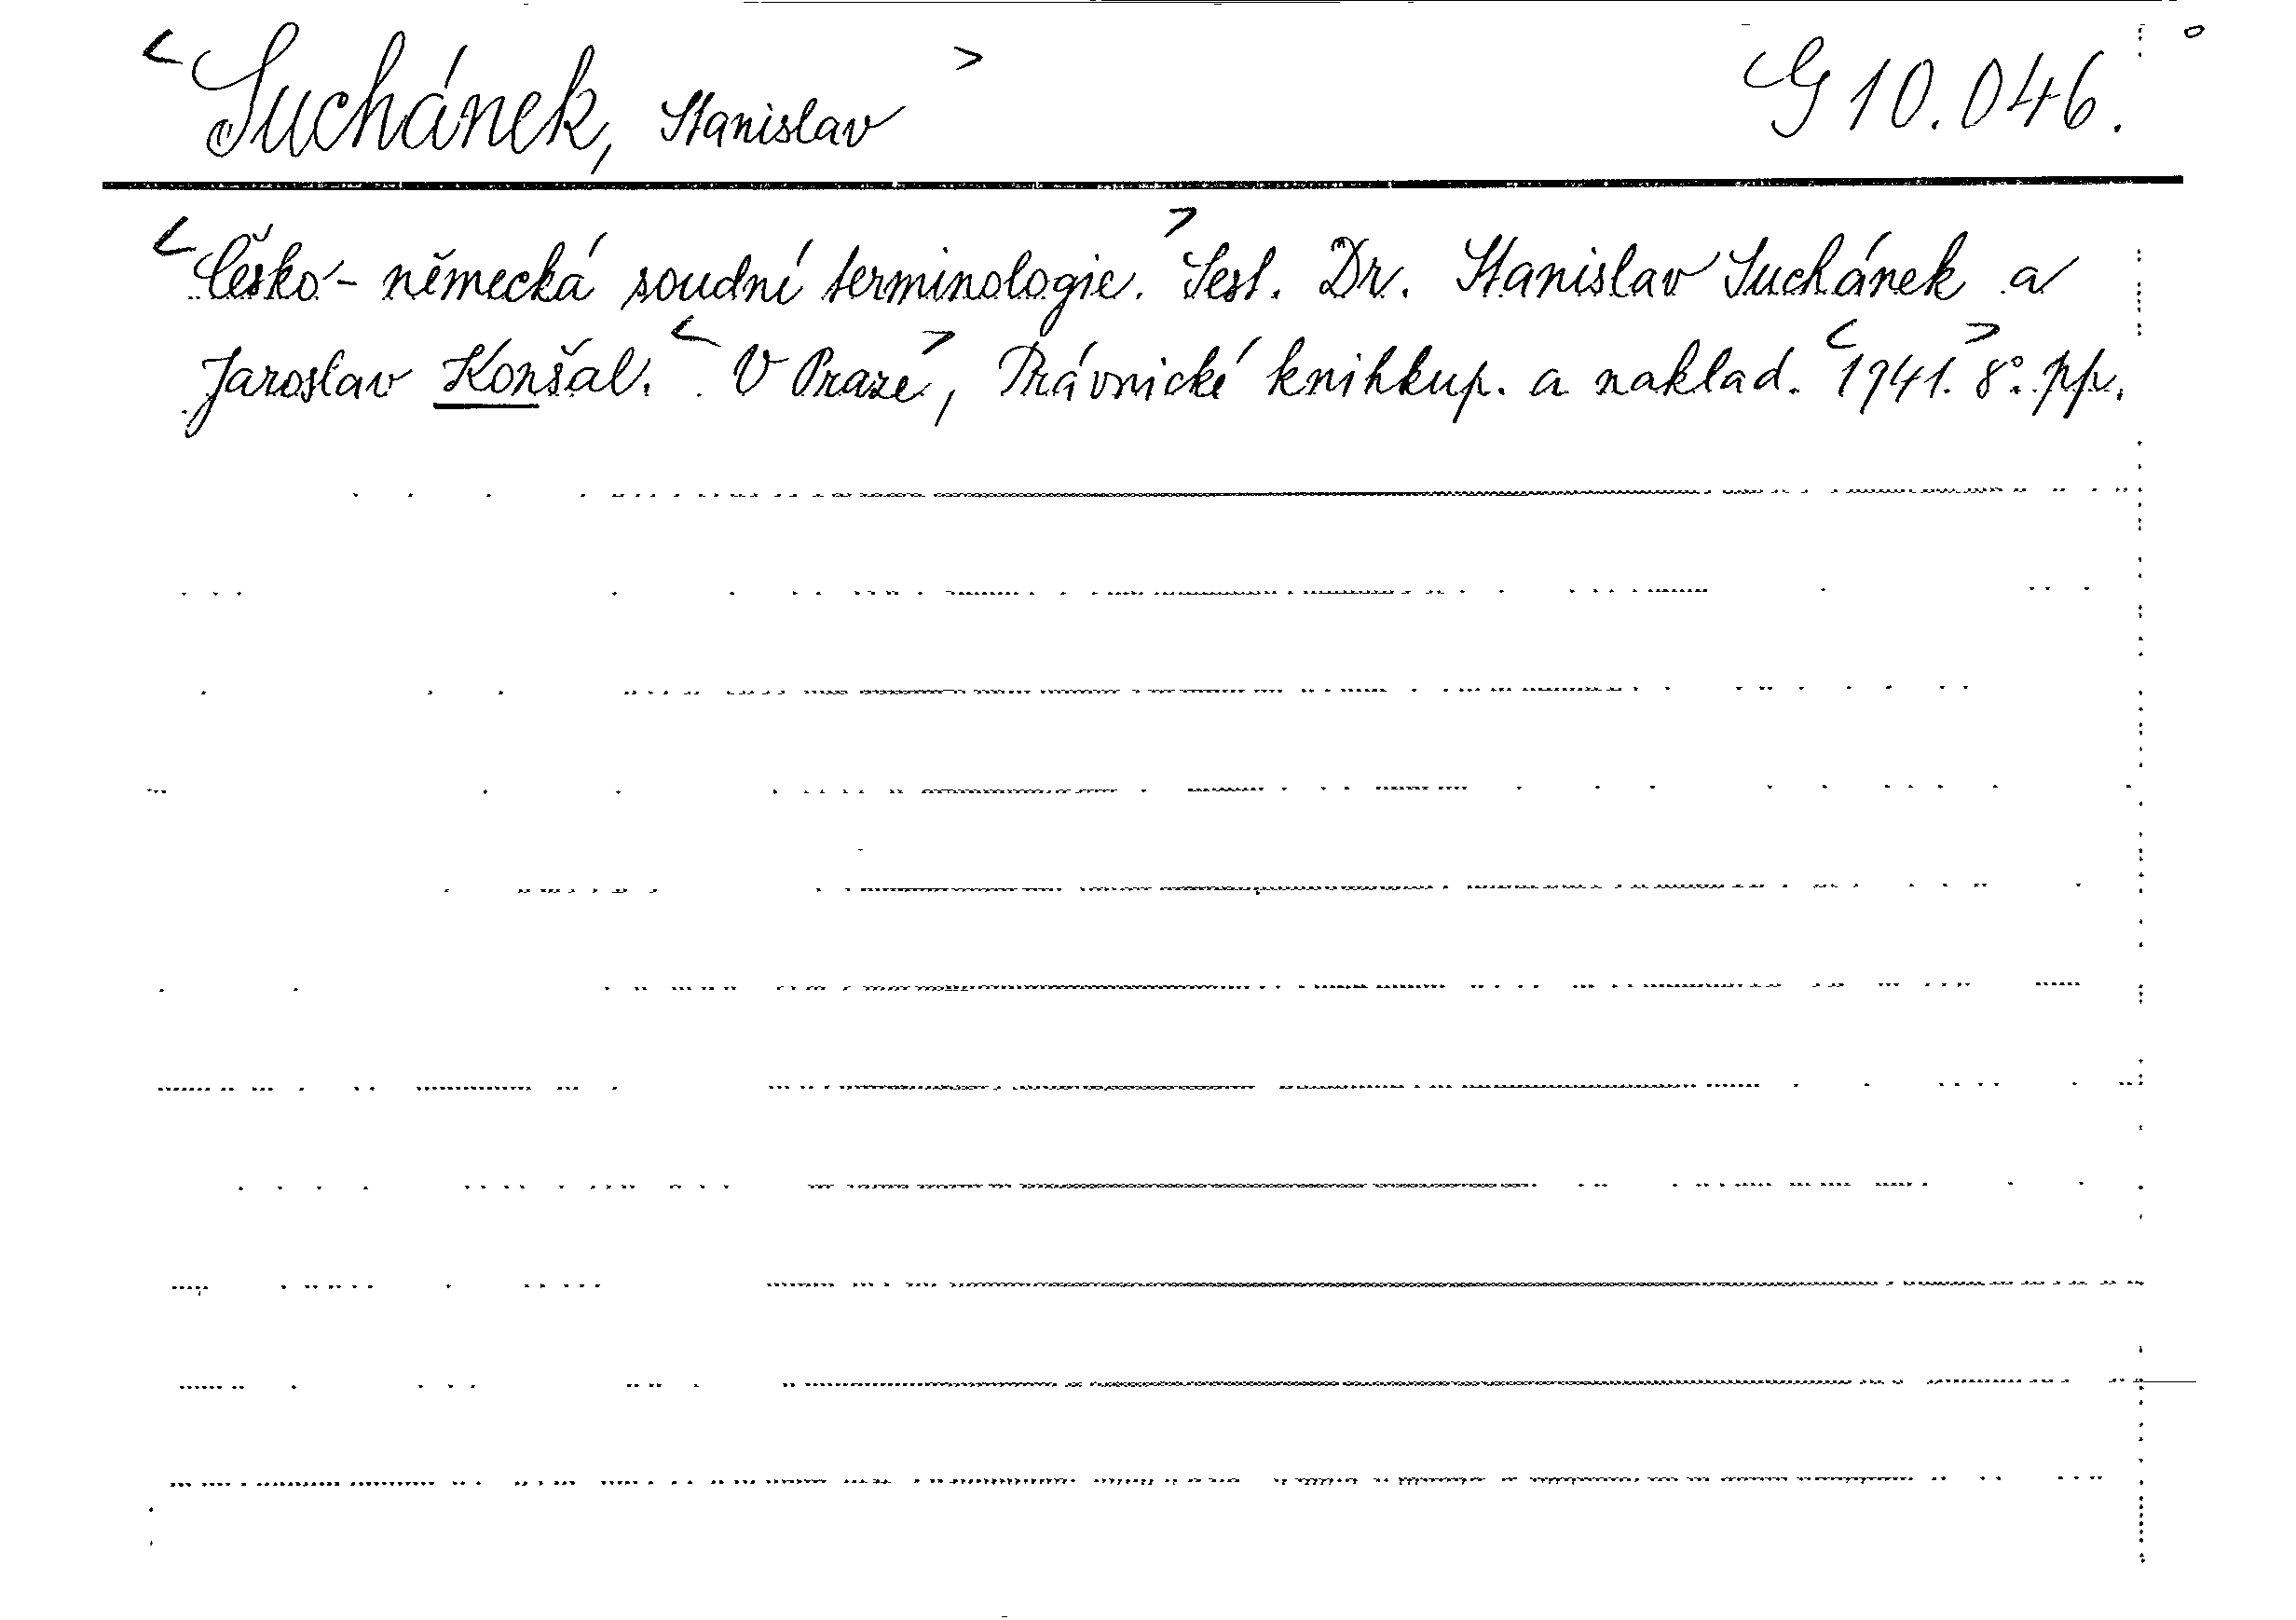 <Suchánek, Stanislav> G 10.046.
<Česko-německá soudní terminologie.> Sest. Dr. Stanislav Suchánek a
Jaroslav Konšal. <V Praze>, Právnické knihkup. a naklad. <1941.> 8°. pp.